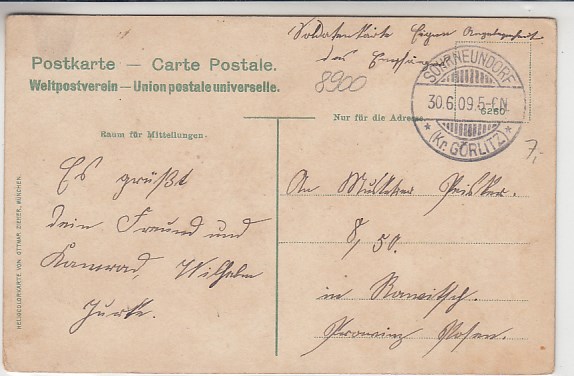 Soldatenkarte Eigene Angelegenheit
des Empfängers
Postkarte — Carte Postale.
Weltpostverein — Union postale universelle.
8900
SOHRNEUNDORF
30.6.09.5-6N
* (Kr. GÖRLITZ) *
6260
Nur für die Adresse.
Raum für Mitteilungen.
7,-
Es grüßt
dein Freund und
Kamrad, Wilhelm
An Musketier Peisker.
8/50.
in Rawitsch.
Provinz Posen.
HELIOCOLORKARTE VON OTTMAR ZIEHER, MÜNCHEN.